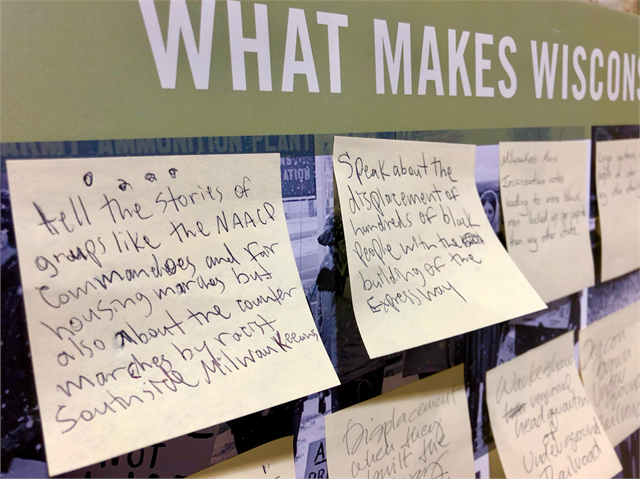 WHAT MAKES WISCONS
ARMY AMMUNITION PLANT
tell the stories of
groups like the NAACP
Commandoes and fair
housing marches but
also about the counter
marches by racist
Southside Milwaukeeans
Speak about the
displacement of
hundreds of black
people with the
building of the
Expressway
Milwaukee's Mass
Incarceration rates
leading to more black
men locked up per capita
than any other state
Displacement
when they
built the
Waukesha
regional
headquarters
of
Underground
Railroad